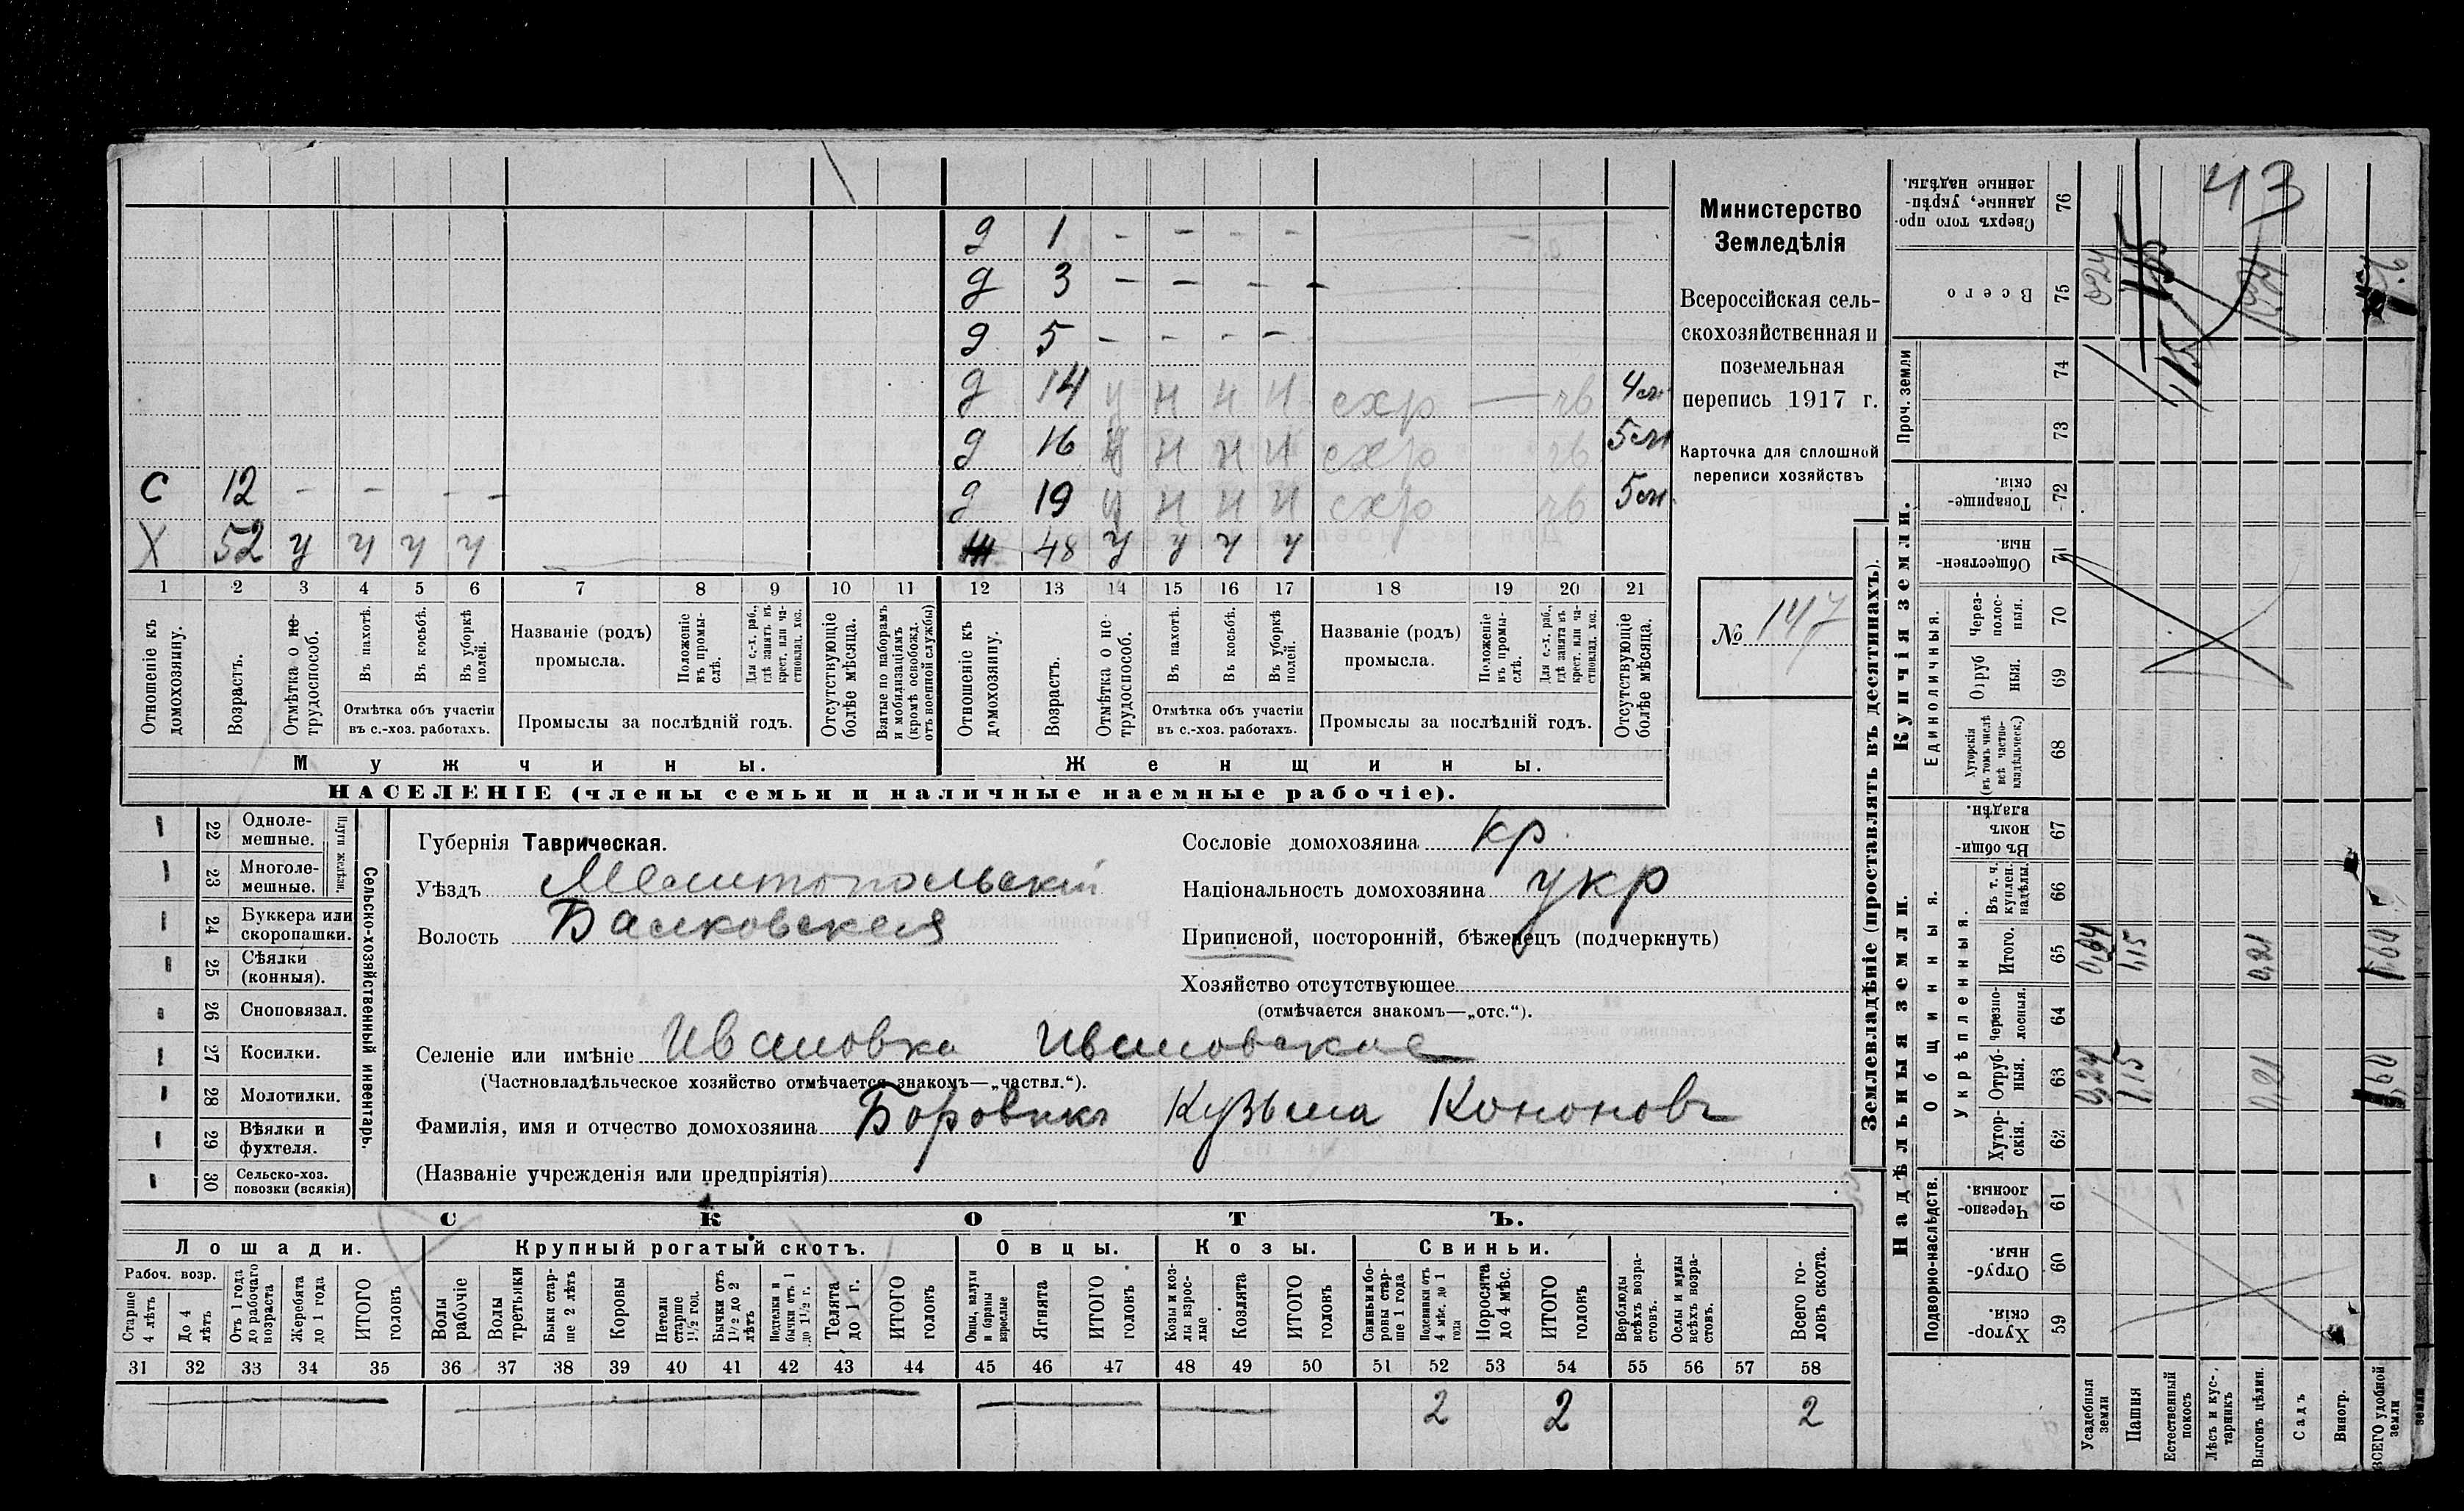 д 1 - - - -
д 3 - - - -
д 5 - - - -
д 14 у н н н схр — чв 4 м
д 16 у н н н схр чв 5 м
С 12 - - - - д 19 у н н н схр чв 5 м
Х 52 у ч ч ч 48 у у ч ч
1 2 3 4 5 6 7 8 9 10 11 12 13 14 15 16 17 18 19 20 21
Отношеніе къ домохозяину.
Возрастъ.
Отмѣтка о не-трудоспособ.
Въ пахотѣ.
Въ косьбѣ.
Въ уборкѣ полей.
Отмѣтка объ участіи въ с.-хоз. работахъ.
Названіе (родъ) промысла.
Положеніе въ промы-слѣ.
Для с.-х. раб., гдѣ занятъ въ крест. или ча-стновлад. хоз.
Промыслы за послѣдній годъ.
Отсутствующіе болѣе мѣсяца.
Взятые по наборамъ и мобилизаціямъ (кромѣ освобожд. отъ военной службы)
Отношеніе къ домохозяину.
Возрастъ.
Отмѣтка о не-трудоспособ.
Въ пахотѣ.
Въ косьбѣ.
Въ уборкѣ полей.
Отмѣтка объ участіи въ с.-хоз. работахъ.
Названіе (родъ) промысла.
Положеніе въ промы-слѣ.
Для с.-х. раб., гдѣ занята въ крест. или ча-стновлад. хоз.
Промыслы за послѣдній годъ.
Отсутствующіе болѣе мѣсяца.
Мужчины. Женщины.
НАСЕЛЕНІЕ (члены семьи и наличные наемные рабочіе).
Министерство
Земледѣлія
Всероссійская сель-
скохозяйственная и
поземельная
перепись 1917 г.
Карточка для сплошной
переписи хозяйствъ
№ 147
Сельско-хозяйственный инвентарь.
Плуги желѣзн.
22 Одноле-мешные.
23 Многоле-мешные.
24 Буккера или скоропашки.
25 Сѣялки (конныя).
26 Сноповязал.
27 Косилки.
28 Молотилки.
29 Вѣялки и фухтеля.
30 Сельско-хоз. повозки (всякія)
Губернія Таврическая.
Уѣздъ Мелитопольскій
Волость Балковская
Сословіе домохозяина кр.
Національность домохозяина укр
Приписной, посторонній, бѣженецъ (подчеркнуть)
Хозяйство отсутствующее
(отмѣчается знакомъ—„отс.“).
Селеніе или имѣніе Ивановка Ивановское
(Частновладѣльческое хозяйство отмѣчается знакомъ—„частвл.“).
Фамилія, имя и отчество домохозяина Боровикъ Кузьма Кононовъ
(Названіе учрежденія или предпріятія)
СКОТЪ.
Лошади. Крупный рогатый скотъ. Овцы. Козы. Свиньи.
Рабоч. возр.
Старше 4 лѣтъ
До 4 лѣтъ
Отъ 1 года до рабочаго возраста
Жеребята до 1 года
ИТОГО головъ
Волы рабочіе
Волы третьяки
Быки стар-ше 2 лѣтъ
Коровы
Нетели старше 1½ год.
Бычки отъ 1½ до 2 лѣтъ
Подтелки и бычки отъ 1 до 1½ г.
Телята до 1 г.
ИТОГО головъ
Овцы, валухи и бараны взрослые
Ягнята
ИТОГО головъ
Козы и коз-лы взрос-лые
Козлята
ИТОГО головъ
Свиньи и бо-ровы стар-ше 1 года
Подсвинки отъ 4 мѣс. до 1 года
Поросята до 4 мѣс.
ИТОГО головъ
Верблюды всѣхъ возра-стовъ.
Ослы и мулы всѣхъ возра-стовъ.
Всего го-ловъ скота.
31 32 33 34 35 36 37 38 39 40 41 42 43 44 45 46 47 48 49 50 51 52 53 54 55 56 57 58
2 2 2
Землевладѣніе (проставлять въ десятинахъ).
Надѣльныя земли.
Подворно-наслѣдств.
Хутор-скія. 59
Отруб-ныя. 60
Черезпо-лосныя. 61
Общинныя.
Укрѣпленныя.
Хутор-скія. 62
Отруб-ныя. 63 0,24 1,15 0,21 1,60
Черезпо-лосныя. 64
Итого. 65 0,24 1,15 0,21 1,60
Въ т. ч. куплен. надѣлы. 66
Въ общи-номъ владѣн. 67
Купчія земли.
Единоличныя.
Хуторскія (въ томъ числѣ всѣ частно-владѣльческ.) 68
Отруб ныя. 69
Через-полос-ныя. 70
Обществен-ныя. 71
Товарище-скія. 72
Проч. земли
73
74
Всего 75 0,24 1,15
Сверхъ того про-данные, укрѣп-ленные надѣлы. 76
43
Усадебныя земли
Пашня
Естественный покосъ
Лѣсъ и кус-тарникъ
Выгонъ цѣлин.
Садъ
Виногр.
ВСЕГО удобной земли
земли